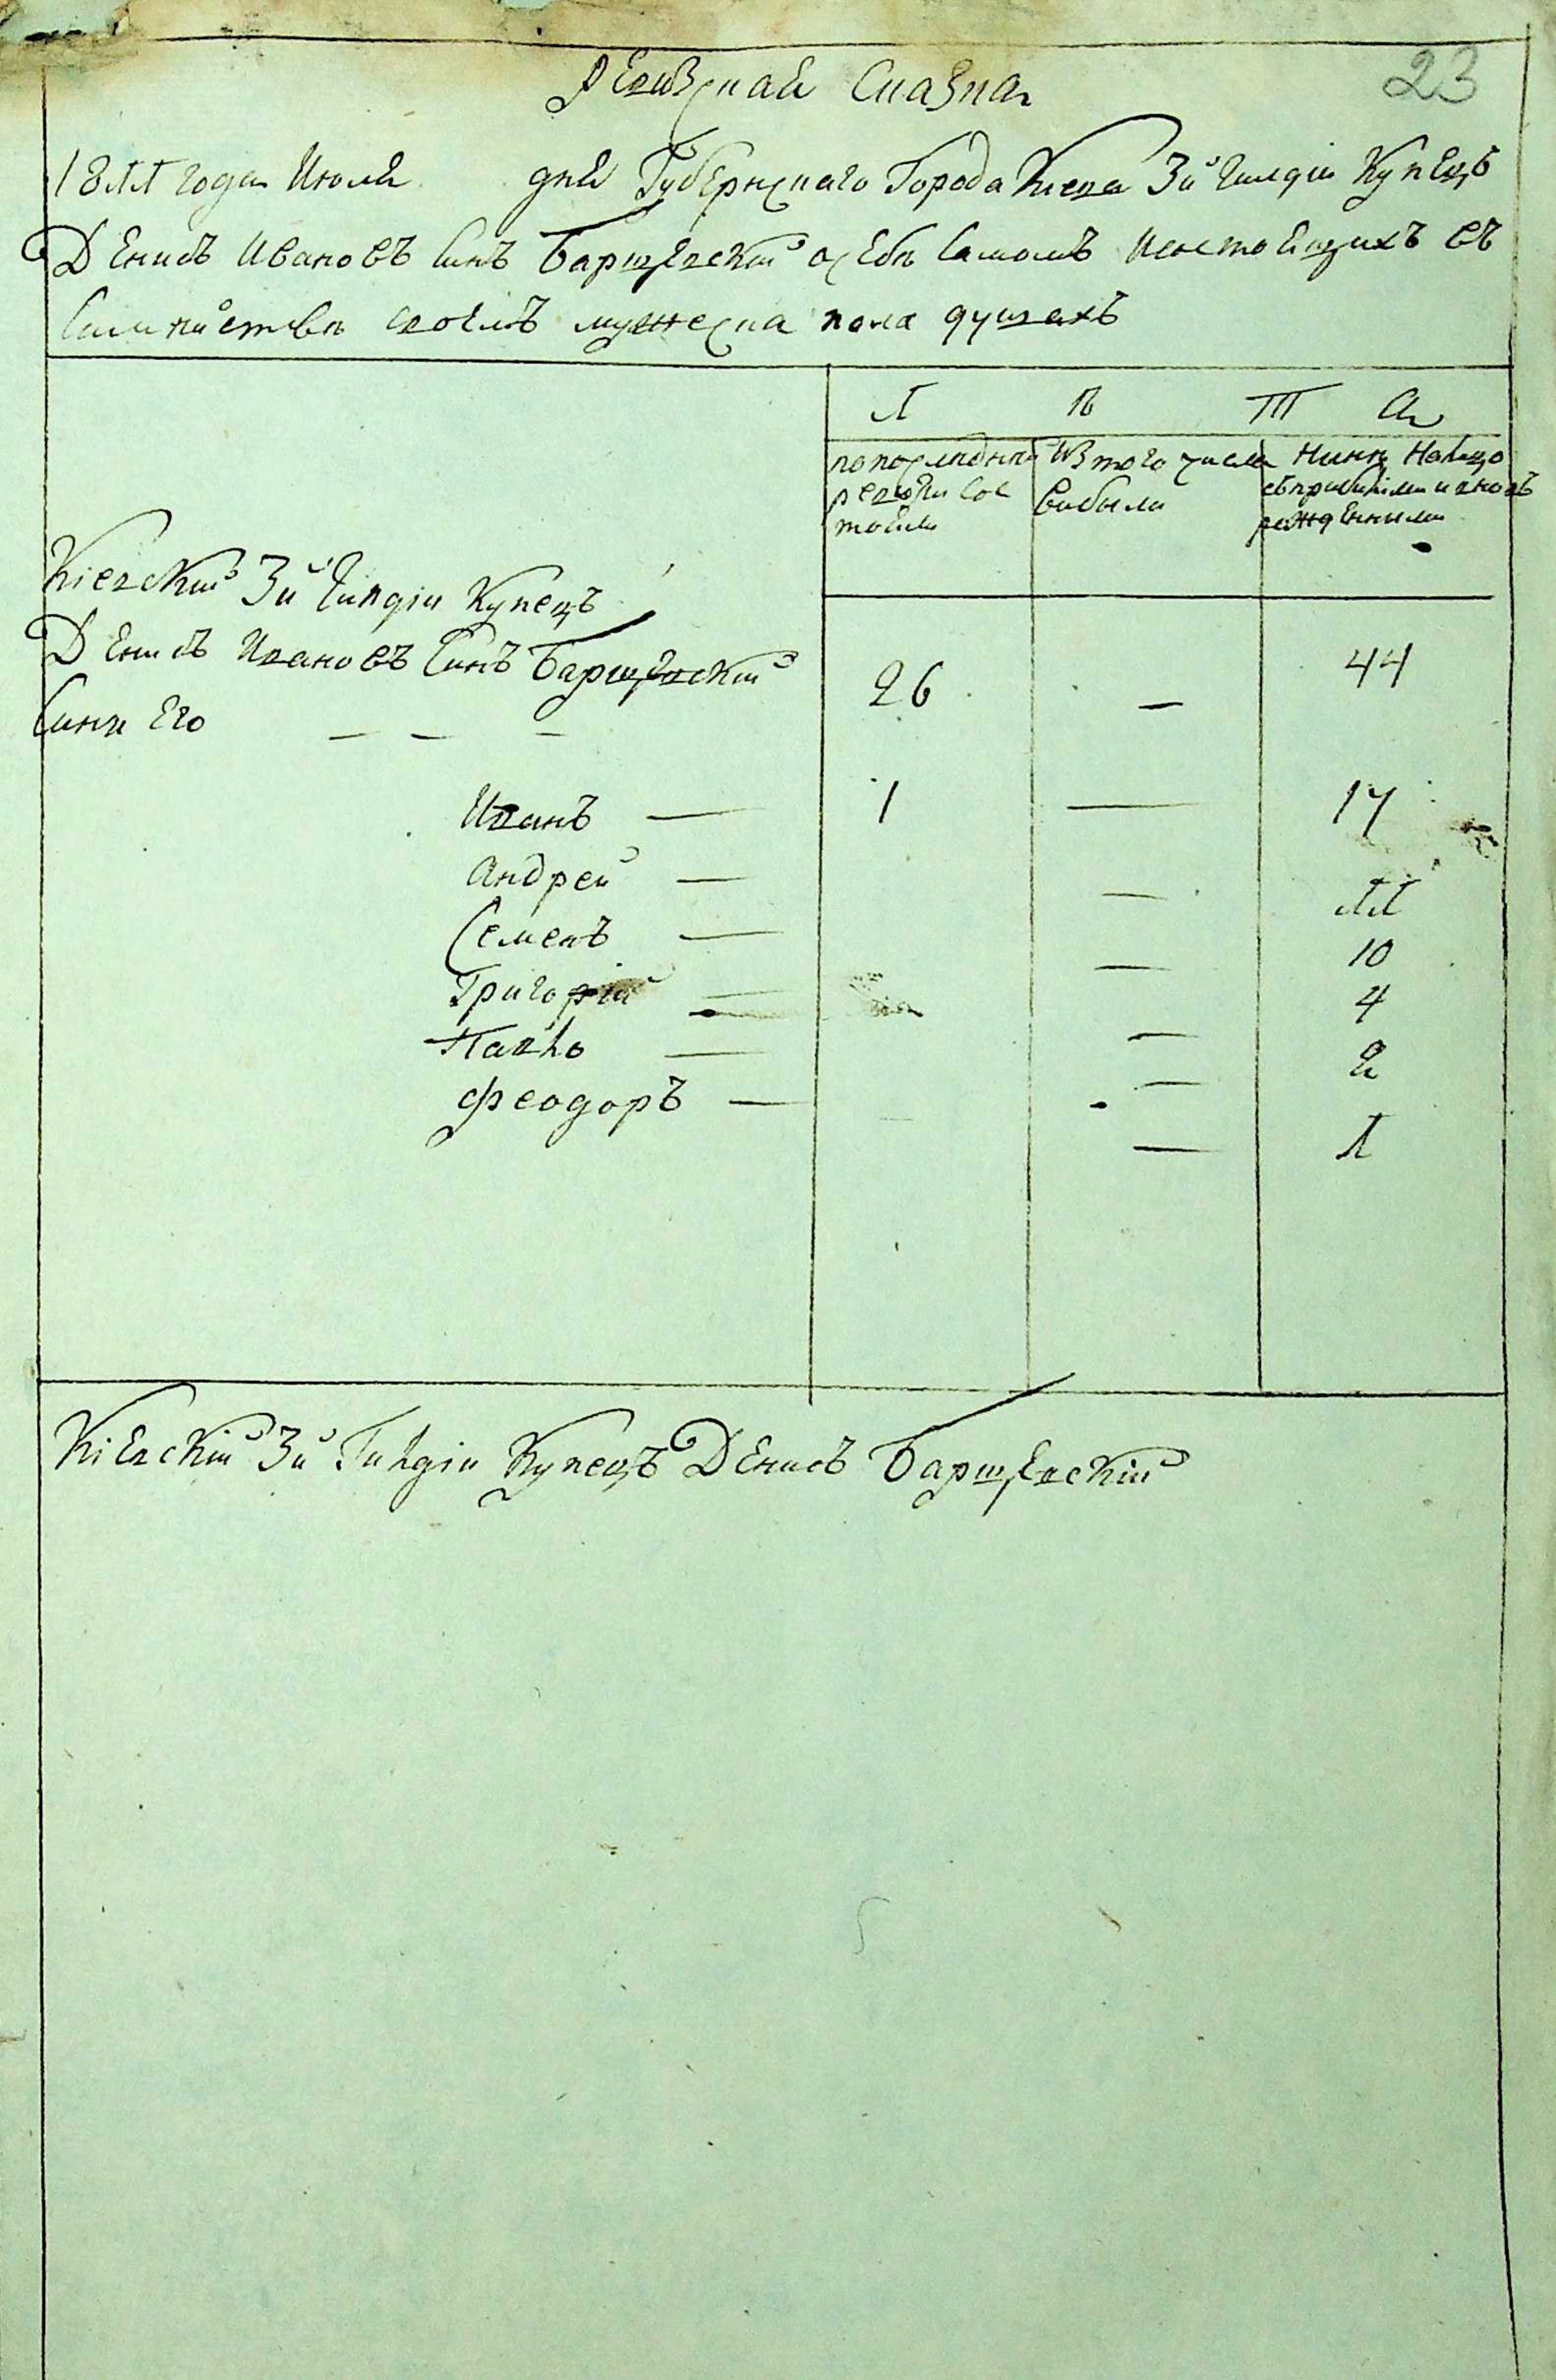 Ревизская Сказка
23
1811 года Июля дня Губернскаго Города Киева 3й Гилдіи Купецъ
Денисъ Ивановъ Синъ Барщевскій о себѣ Самомъ и состоящихъ въ
Симийствѣ своемъ мужеска пола душахъ
Л Ѣ Т А
по последней Из того числа Нинѣ На лицо
ревизіи сос вибыли с прибилими и вновь
тояли рожденними
Кіевскій 3й Гилдіи Купецъ
Денисъ Ивановъ Синъ Барщевскій 26 — 44
Сини Его — — —
Иванъ — 1 — 17
Андрей — — 11
Семенъ — — 10
Григорій — — 4
Павло — — 2
Феодоръ — — 1
Кіевскій 3й Гилдіи Купецъ Денисъ Барщевскій